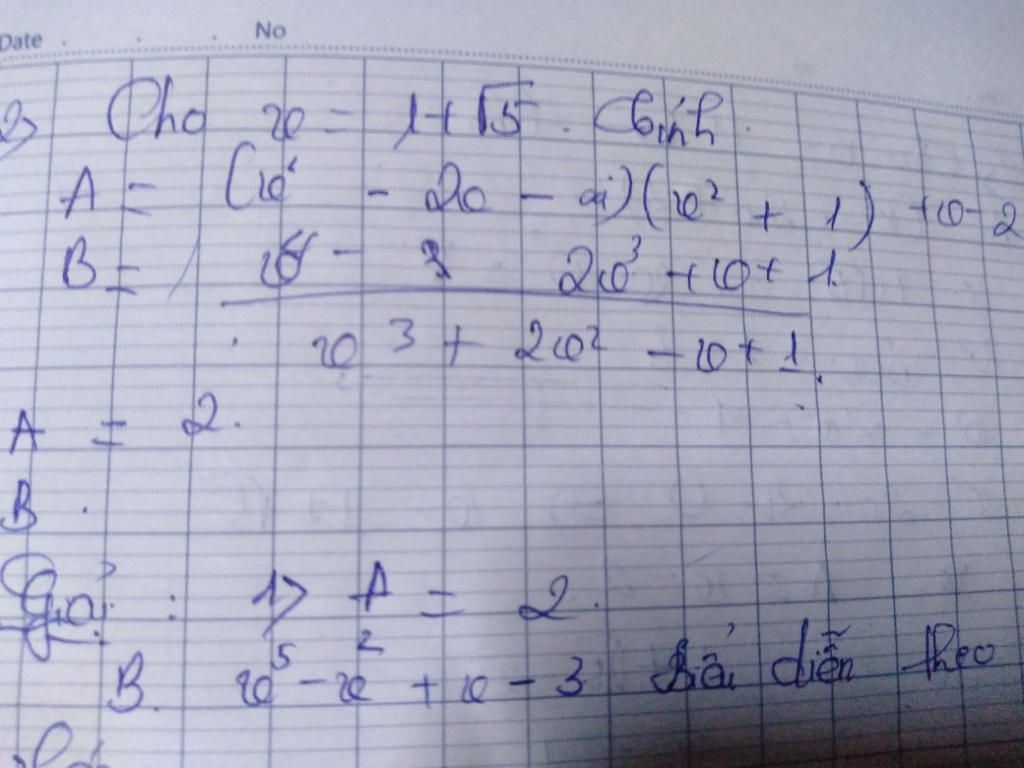 Date No
2) Cho x = 1+√5. Tính
A = (x² - 2x - )(x² + 1) + x - 2
B = x⁴ - 2x³ + x + 1
x³ + 2x² - x + 1.
A = 2.
B.
Giải: 1> A = 2.
B. x⁵ - x² + x - 3 diễn theo